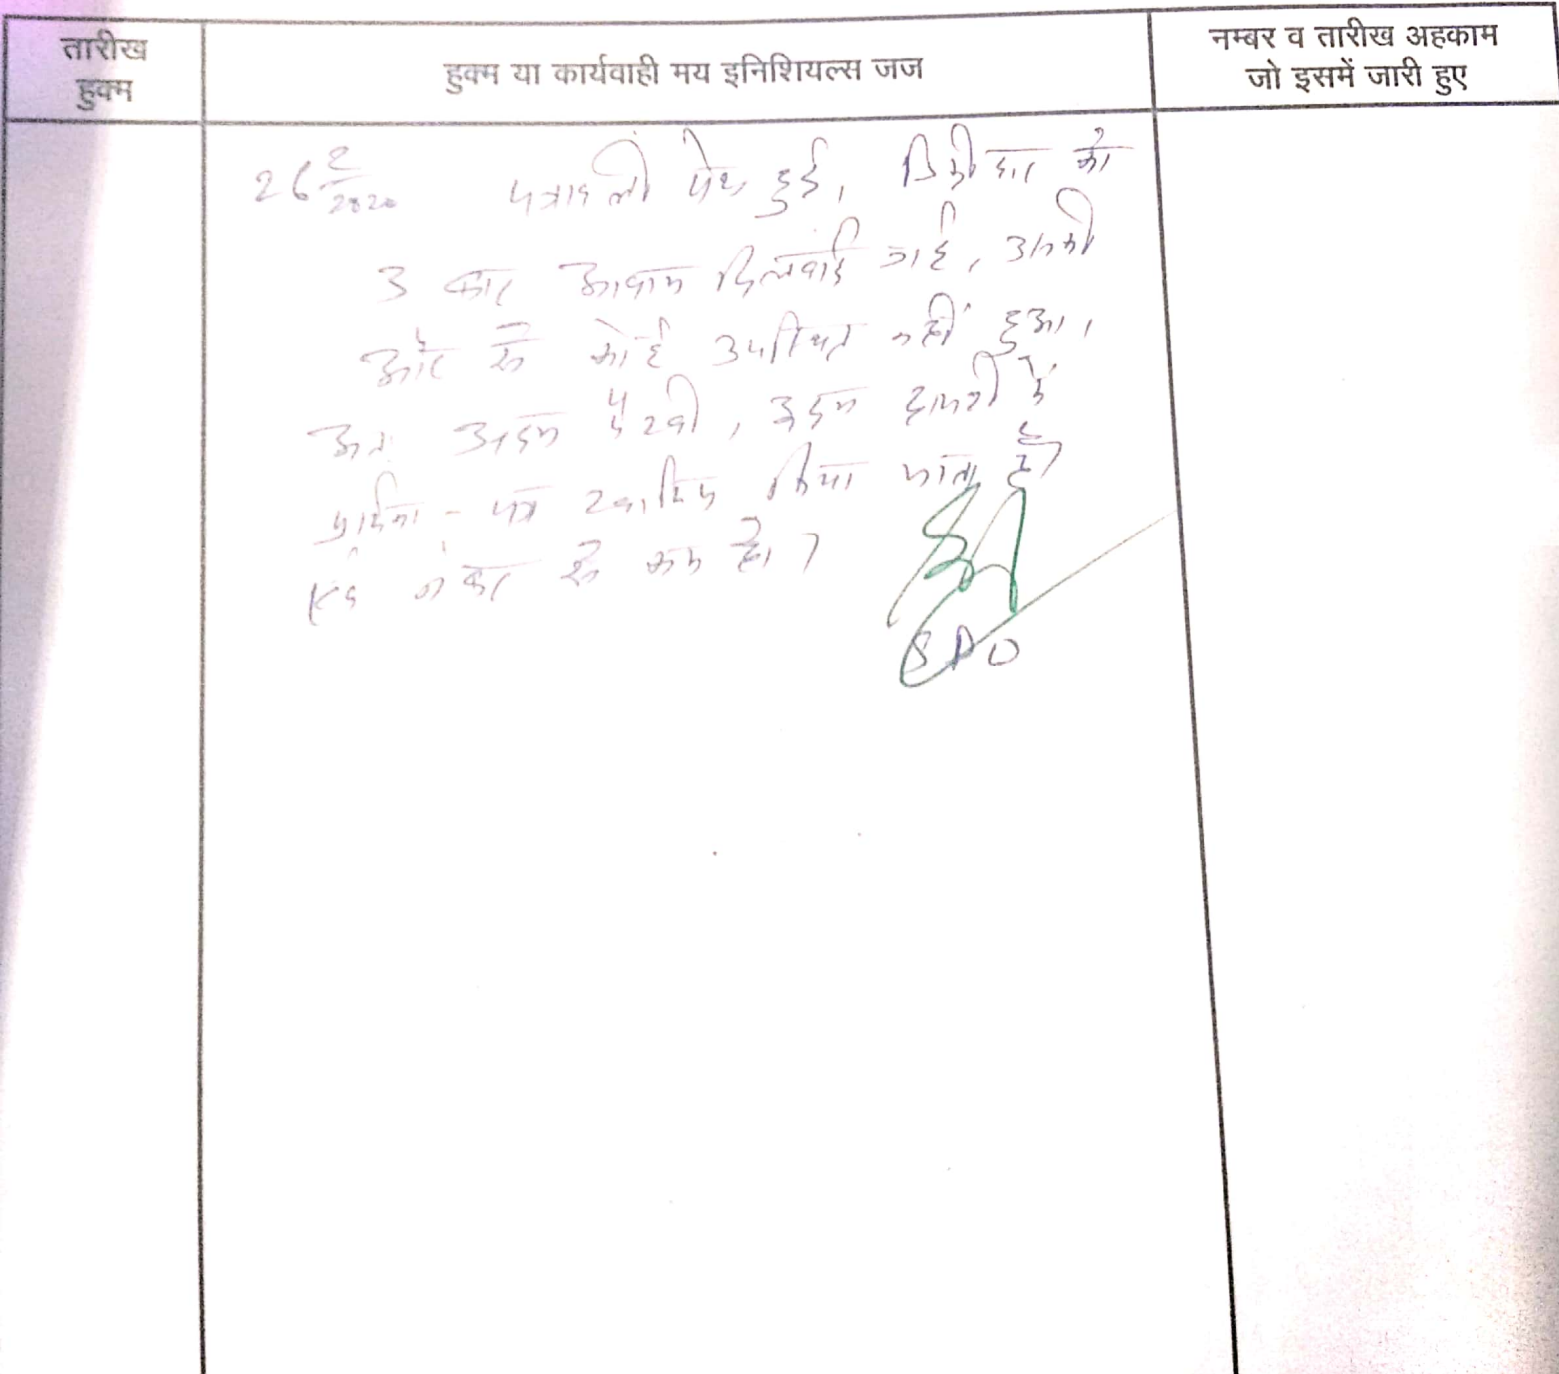 तारीख
हुक्म
हुक्म या कार्यवाही मय इनिशियल्स जज
नम्बर व तारीख अहकाम
जो इसमें जारी हुए
26 2/2020 पत्रावली पेश हुई, डिक्रीदार को
3 बार आवाज दिलवाई गई, उनकी
ओर से कोई उपस्थित नहीं हुआ।
अतः अदम पैरवी, अदम हाजरी में
प्रार्थना-पत्र खारिज किया जाता है।
नंबर से कम हो।
SDO